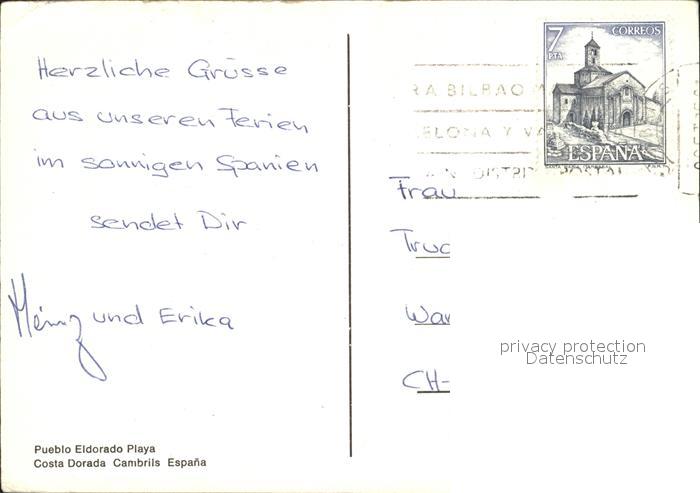 Herzliche Grüsse
aus unseren Ferien
im sonnigen Spanien
sendet Dir
Heinz und Erika
Pueblo Eldorado Playa
Costa Dorada Cambrils España
7 PTA CORREOS
ESPAÑA
RA BILBAO
ELONA Y VA
DISTRITO POSTAL
Frau
Truc
War
CH-
privacy protection
Datenschutz